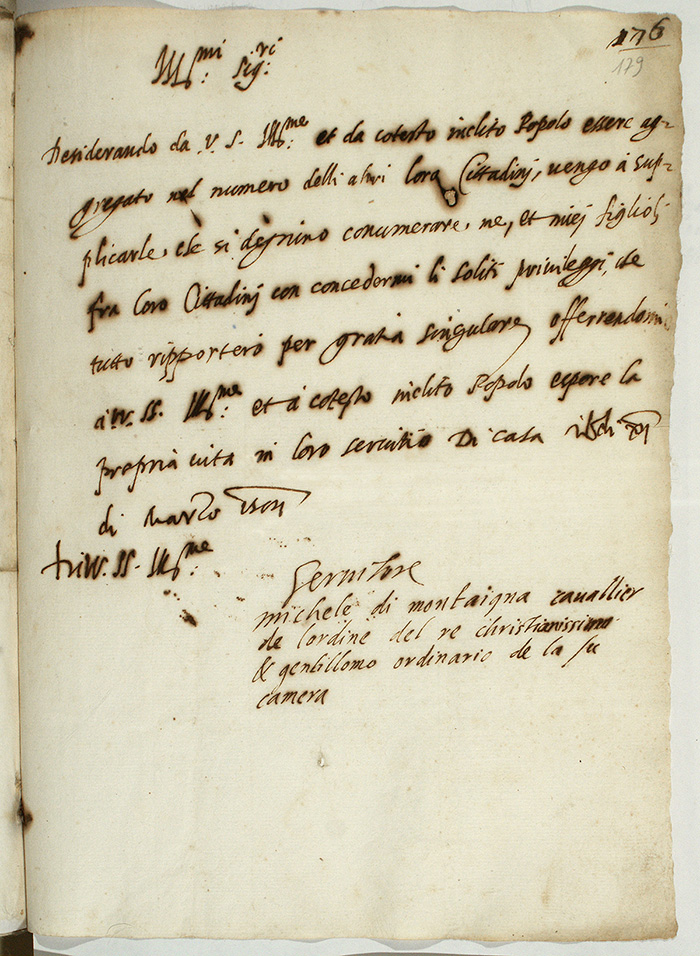 176
179
Ill.mi Sig.ri
Desiderando da V. S. Ill.me et da cotesto inclito Popolo essere ag=
gregato nel numero delli altri loro Cittadinj, vengo à sup=
plicarle, che si degnino conumerare, me, et miej figliolj
fra loro Cittadinj con concedermi li soliti privileggi, che
tutto ripporterò per gratia singulare, offerrendomi
à VV. SS. Ill.me et à cotesto inclito Popolo espore la
propria vita in loro servitio Di casa
di Marzo
Di VV. SS. Ill.me
Servitore
michele di montaigna cavallier
de lordine del re christianissimo
& gentillomo ordinario de la su
camera